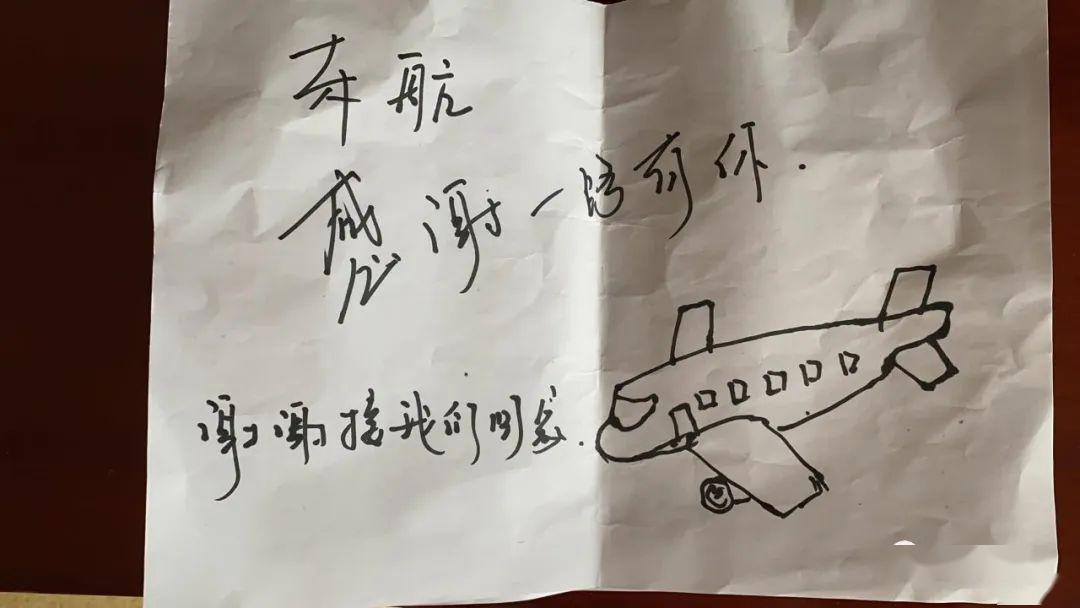 东航
感谢一路有你.
谢谢接我们回家.